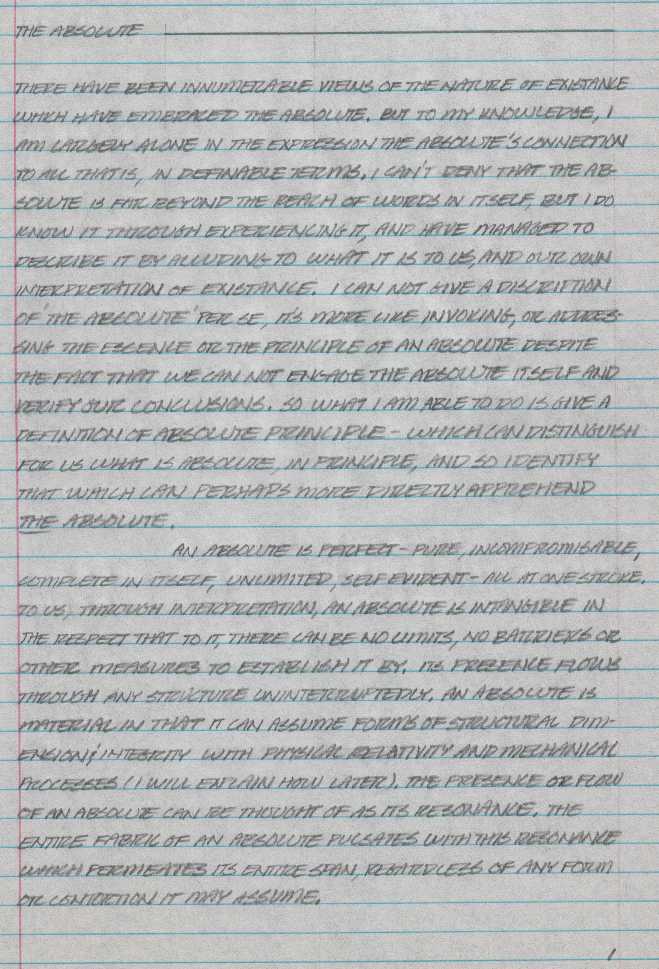 THE ABSOLUTE
THERE HAVE BEEN INNUMERABLE VIEWS OF THE NATURE OF EXISTANCE
WHICH HAVE EMBRACED THE ABSOLUTE. BUT TO MY KNOWLEDGE, I
AM LARGELY ALONE IN THE EXPRESSION THE ABSOLUTE'S CONNECTION
TO ALL THAT IS, IN DEFINABLE TERMS. I CAN'T DENY THAT THE AB-
SOLUTE IS FAR BEYOND THE REACH OF WORDS IN ITSELF, BUT I DO
KNOW IT THROUGH EXPERIENCING IT, AND HAVE MANAGED TO
DESCRIBE IT BY ALLUDING TO WHAT IT IS TO US, AND OUR OWN
INTERPRETATION OF EXISTANCE. I CAN NOT GIVE A DISCRIPTION
OF 'THE ABSOLUTE' PER SE, IT'S MORE LIKE INVOKING, OR ADDRES-
SING THE ESSENCE OR THE PRINCIPLE OF AN ABSOLUTE DESPITE
THE FACT THAT WE CAN NOT ENGAGE THE ABSOLUTE ITSELF AND
VERIFY OUR CONCLUSIONS. SO WHAT I AM ABLE TO DO IS GIVE A
DEFINITION OF ABSOLUTE PRINCIPLE - WHICH CAN DISTINGUISH
FOR US WHAT IS ABSOLUTE, IN PRINCIPLE, AND SO IDENTIFY
THAT WHICH CAN PERHAPS MORE DIRECTLY APPREHEND
THE ABSOLUTE.
AN ABSOLUTE IS PERFECT - PURE, INCOMPROMISABLE,
COMPLETE IN ITSELF, UNLIMITED, SELF EVIDENT - ALL AT ONE STROKE.
TO US, THROUGH INTERPRETATION, AN ABSOLUTE IS INTANGIBLE IN
THE RESPECT THAT TO IT, THERE CAN BE NO LIMITS, NO BARRIERS OR
OTHER MEASURES TO ESTABLISH IT BY. ITS PRESENCE FLOWS
THROUGH ANY STRUCTURE UNINTERRUPTEDLY. AN ABSOLUTE IS
MATERIAL IN THAT IT CAN ASSUME FORMS OF STRUCTURAL DIM-
ENSION & INTEGRITY WITH PHYSICAL RELATIVITY AND MECHANICAL
PROCESSES (I WILL EXPLAIN HOW LATER). THE PRESENCE OR FLOW
OF AN ABSOLUTE CAN BE THOUGHT OF AS ITS RESONANCE. THE
ENTIRE FABRIC OF AN ABSOLUTE PULSATES WITH THIS RESONANCE
WHICH PERMEATES ITS ENTIRE SPAN, REGARDLESS OF ANY FORM
OR CONTORTION IT MAY ASSUME.
1